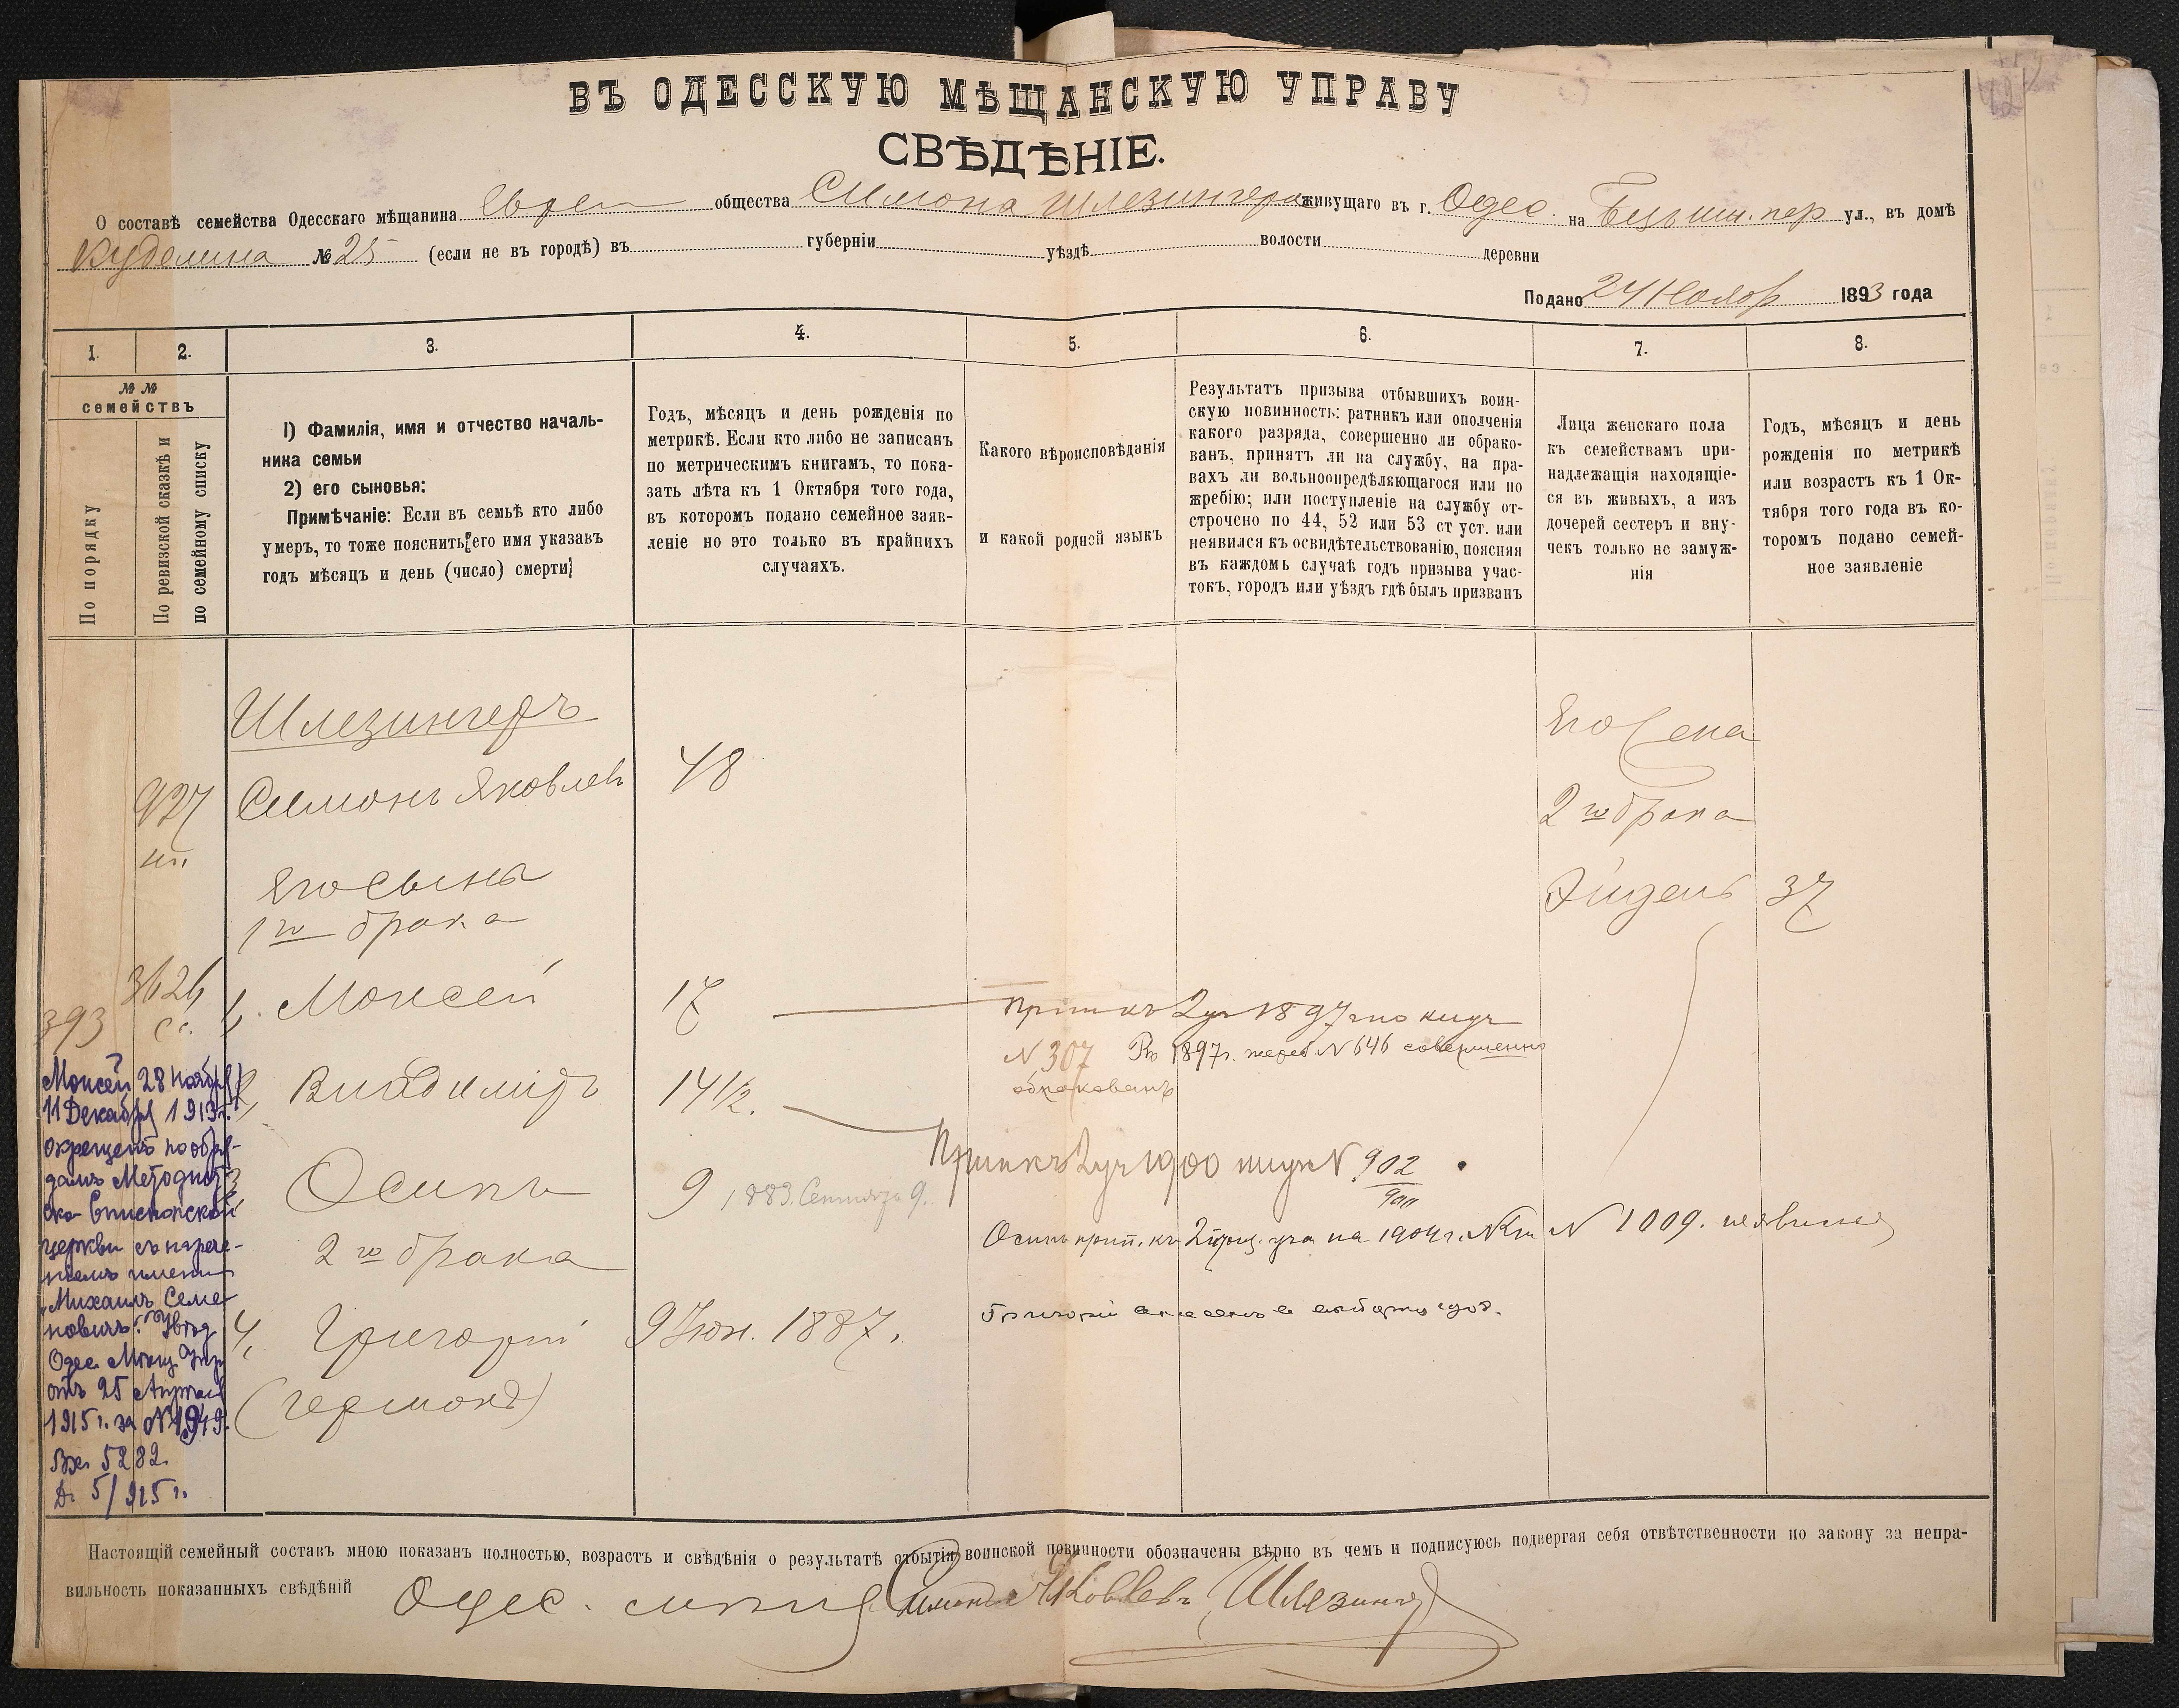 ВЪ ОДЕССКУЮ МѢЩАНСКУЮ УПРАВУ
СВѢДѢНІЕ.
О составѣ семейства Одесскаго мѣщанина Еврей общества Симона Шлезингера живущаго въ г. Одес. на пер ул., въ домѣ
№ 25 (если не въ городѣ) въ губерніи уѣздѣ волости деревни
Подано 24 Ноябр 1893 года
1. 2. 3. 4. 5. 6. 7. 8.
№ №
семействъ
По порядку
По ревизской сказкѣ и
по семейному списку
I) Фамилія, имя и отчество началь-
ника семьи
2) его сыновья:
Примѣчаніе: Если въ семьѣ кто либо
умеръ, то тоже пояснить его имя указавъ
годъ мѣсяцъ и день (число) смерти
Годъ, мѣсяцъ и день рожденія по
метрикѣ. Если кто либо не записанъ
по метрическимъ книгамъ, то пока-
зать лѣта къ 1 Октября того года,
въ которомъ подано семейное заяв-
леніе но это только въ крайнихъ
случаяхъ.
Какого вѣроисповѣданія
и какой родной языкъ
Результатъ призыва отбывшихъ воин-
скую повинность: ратникъ или ополченія
какого разряда, совершенно ли обрако-
ванъ, принятъ ли на службу, на пра-
вахъ ли вольноопредѣляющагося или по
жребію; или поступленіе на службу от-
строчено по 44, 52 или 53 ст уст. или
неявился къ освидѣтельствованію, поясняя
въ каждомъ случаѣ годъ призыва учас-
токъ, городъ или уѣздъ гдѣ былъ призванъ
Лица женскаго пола
къ семействамъ при-
надлежащія находящіе-
ся въ живыхъ, а изъ
дочерей сестеръ и вну-
чекъ только не замуж-
нія
Годъ, мѣсяцъ и день
рожденія по метрикѣ
или возрастъ къ 1 Ок-
тября того года въ ко-
торомъ подано семей-
ное заявленіе
Шлезингеръ
927 Симонъ Яковлевъ 48
Его жена
2го брака
Эйдель 37
Его сыны
1го брака
393 3626 1. Моисей 17 Прип къ 2 уч 1897 г по
N 307 Въ 1897 г. жереб N 646 совершенно
обракованъ
2, Владиміръ 14 1/2.
Прип къ 2 уч 1900 N 902
3, Осипъ 9 1883. Сентября 9.
Осипъ прип. къ 2 приз. уча на 1904 г. N 1009.
2го брака
4, Григорій 9 Іюн. 1887.
Григорій
(Германъ)
Моисей 28 Ноября/
11 Декабря 1913 г.
окрещенъ по обря-
дамъ Методист-
ско Епископской
церкви съ нарече-
ніемъ имени
„Михаилъ Семе-
новичъ". Увѣд.
Одес. Мѣщ. Упр
отъ 25 Апрѣля
1915 г. за N 1949.
Вх. 5282.
Д. 5/915 г.
Настоящій семейный составъ мною показанъ полностью, возрастъ и свѣдѣнія о результатѣ отбытія воинской повинности обозначены вѣрно въ чемъ и подписуюсь подвергая себя отвѣтственности по закону за непра-
вильность показанныхъ свѣдѣній Одес. Симонъ Яковлевъ Шлезингеръ